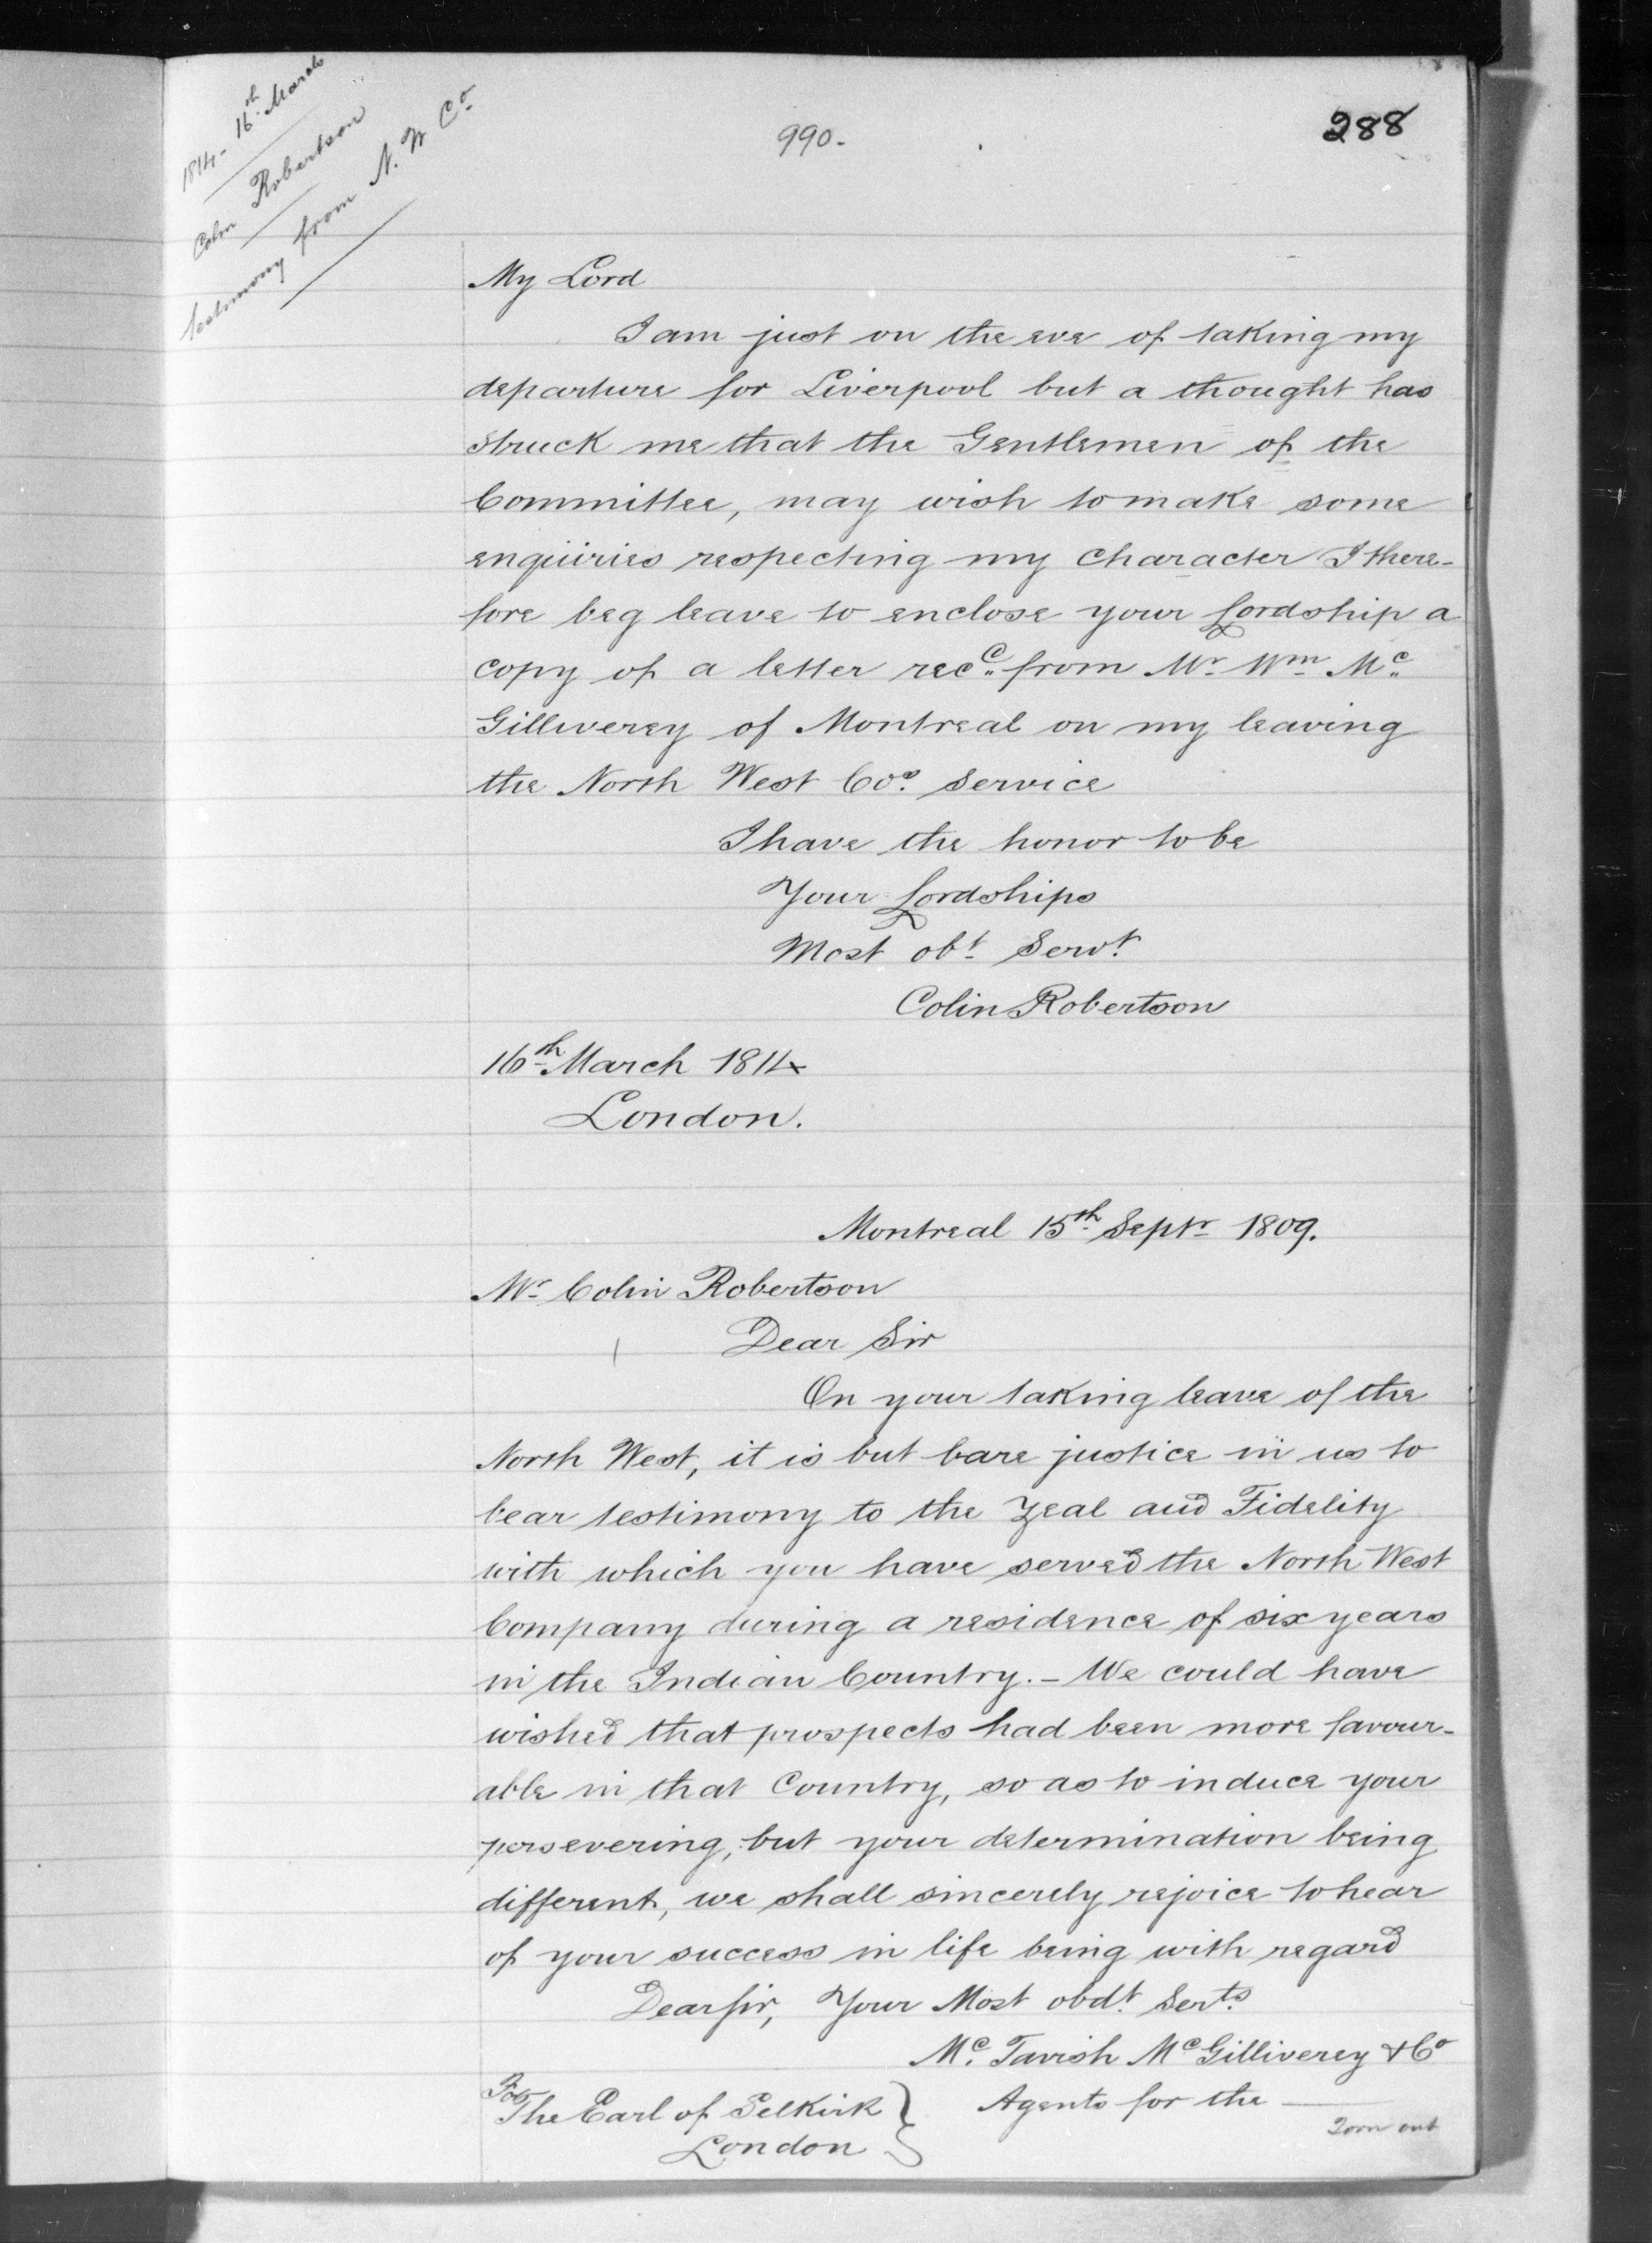 1814 - 16th March
Colin Robertson
testimony from N. W Co
990.
288
My Lord
I am just on the eve of taking my
departure for Liverpool but a thought has
struck me that the Gentlemen of the
Committee, may wish to make some
enquiries respecting my character I there-
fore beg leave to enclose your Lordship a
copy of a letter recd. from Mr. Wm. Mc.
Gilliverey of Montreal on my leaving
the North West Cos. Service
I have the honor to be
Your Lordships
Most obt. Servt.
Colin Robertson
16th March 1814
London.
Montreal 15th Septr 1809.
Mr. Colin Robertson
Dear Sir
On your taking leave of the
North West, it is but bare justice in us to
bear testimony to the Zeal and Fidelity
with which you have served the North West
Company during a residence of six years
in the Indian Country. - We could have
wished that prospects had been more favour-
able in that Country, so as to induce your
persevering, but your determination being
different, we shall sincerely rejoice to hear
of your success in life being with regard
Dear Sir, Your Most obdt. Serts.
Mc. Tavish McGilliverey & Co
For The Earl of Selkirk } Agents for the
London
Torn out